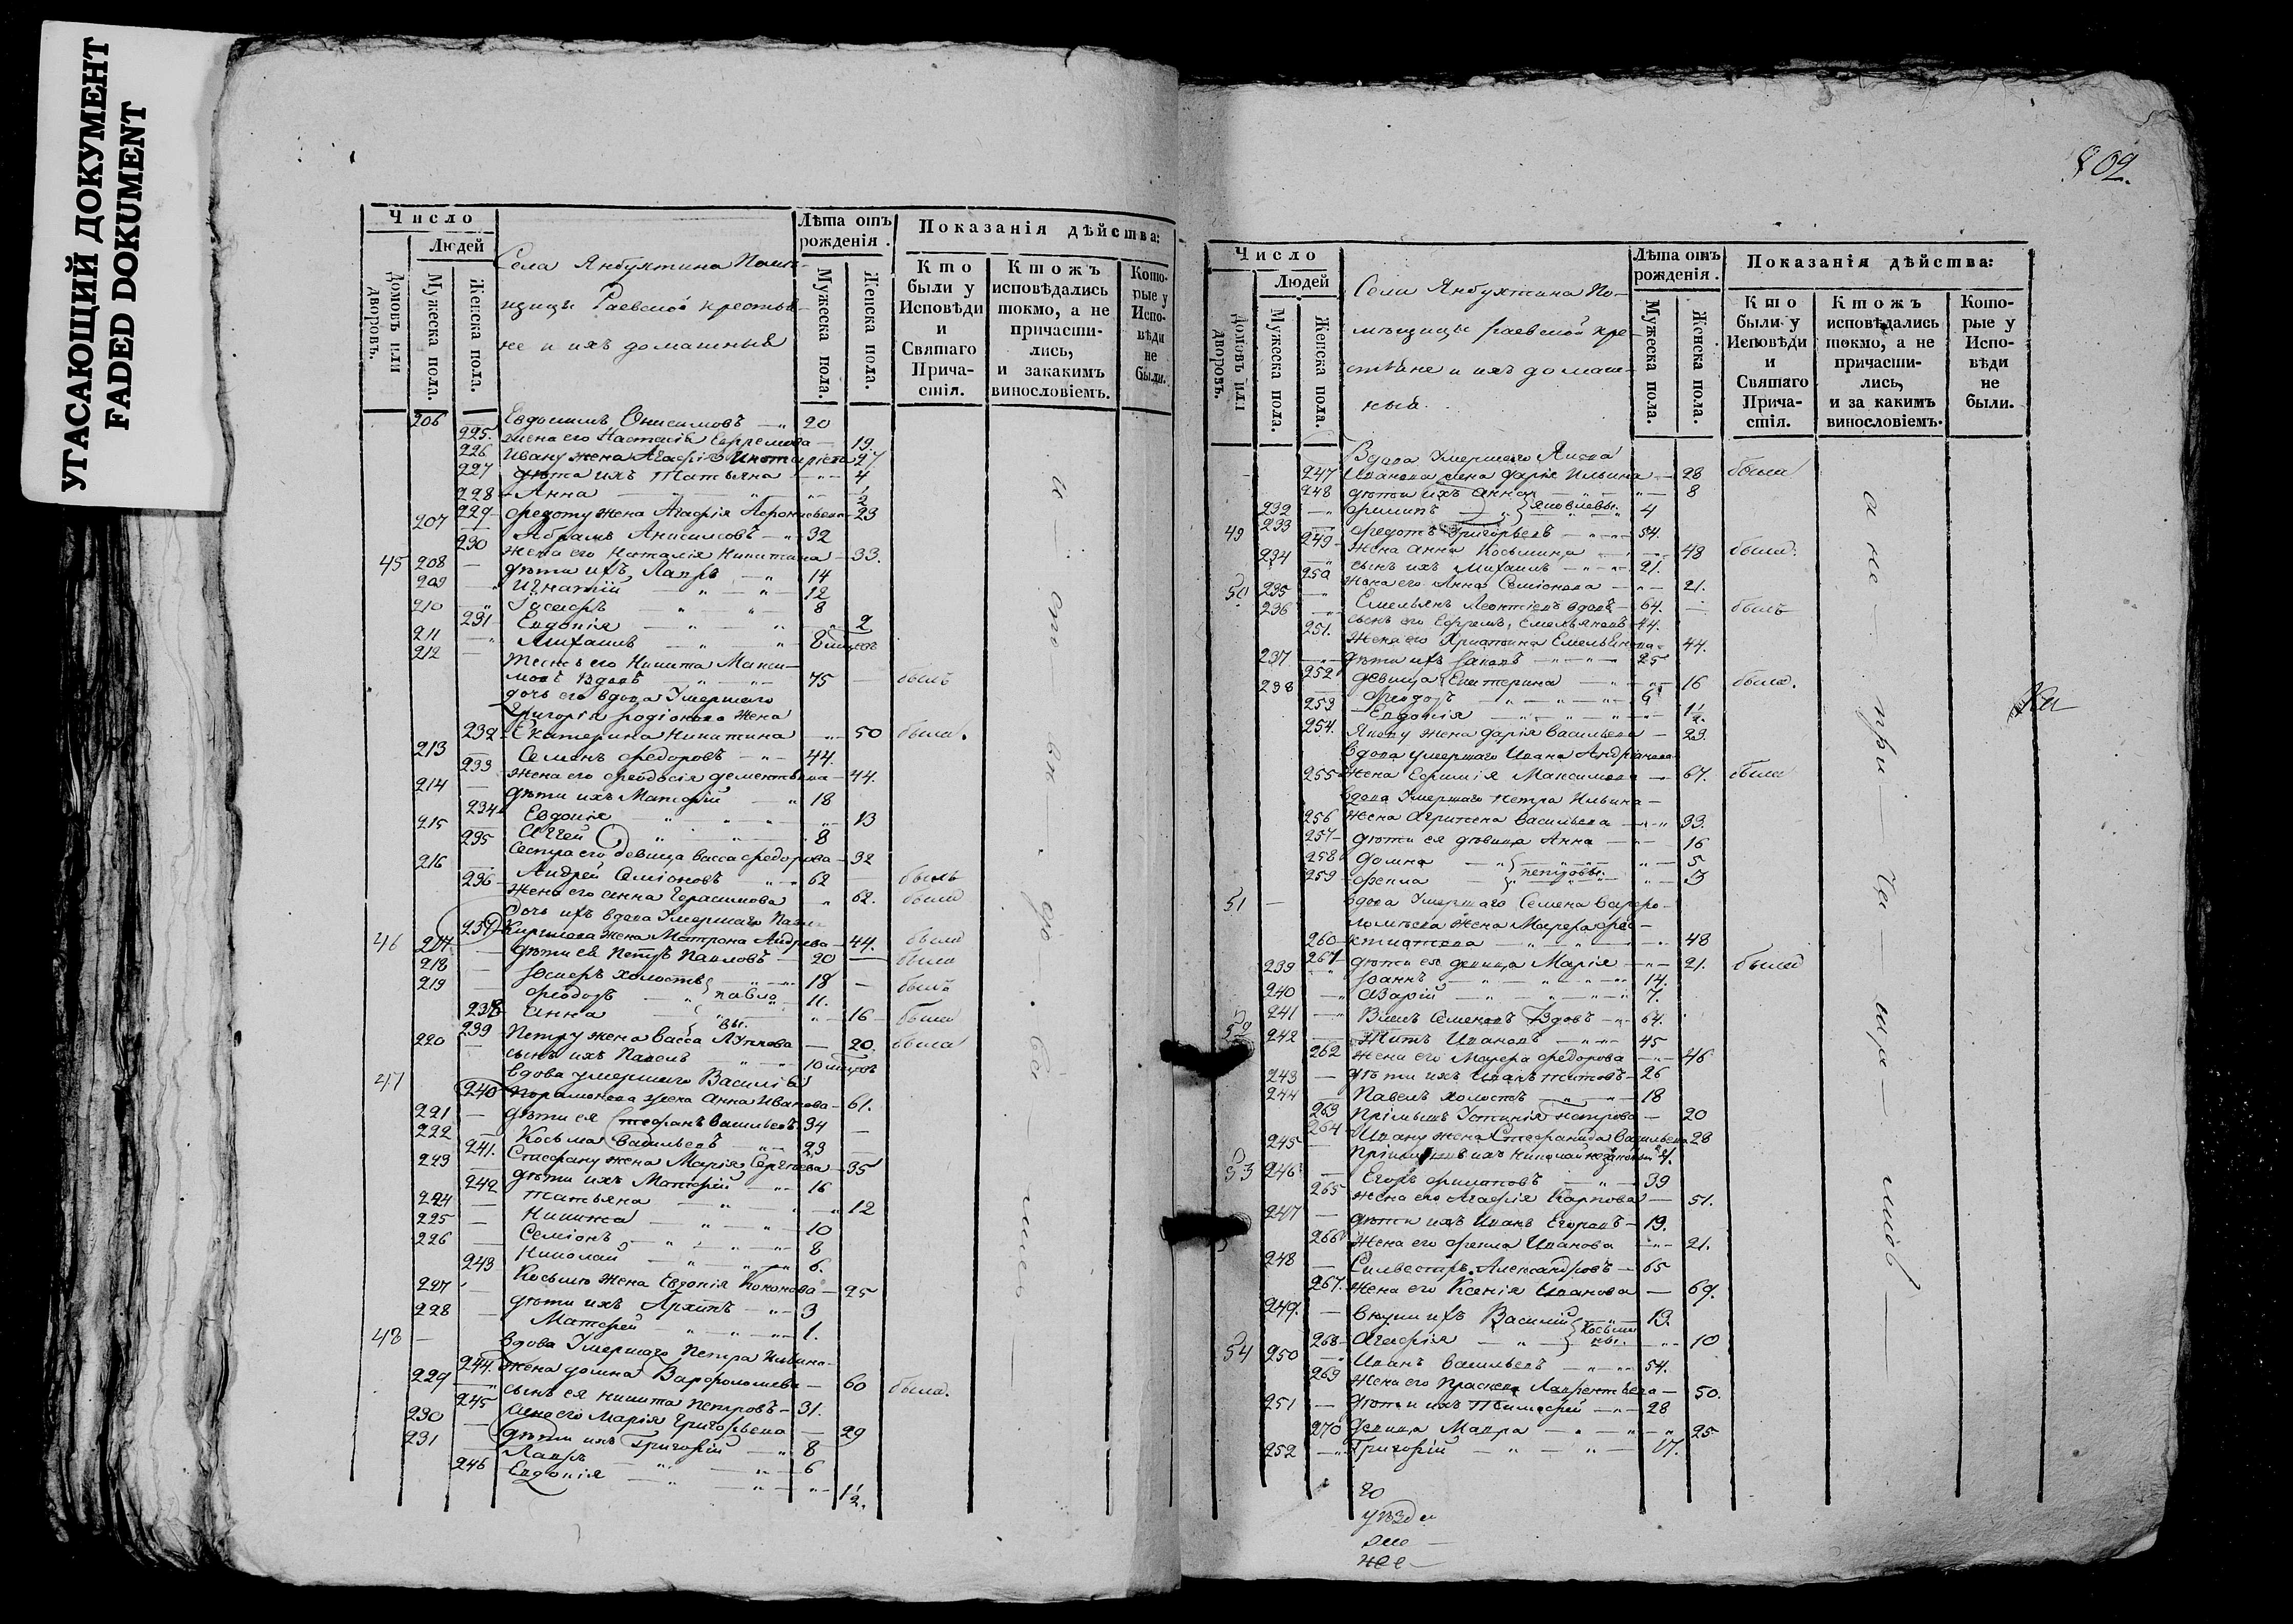 УГАСАЮЩИЙ ДОКУМЕНТ
FADED DOKUMENT
Число
Людей
Домовъ или дворовъ.
Мужеска пола.
Женска пола.
Села Янбухтина Помѣ-
щицы Раевской крестья-
не и ихъ домашныя
Лѣта отъ рожденія.
Мужеска пола.
Женска пола.
Показанія дѣйства:
Кто были у Исповѣди и Святаго Прича-стія.
Ктожъ исповѣдались токмо, а не причасти-лись, и закакимъ винословіемъ.
Кото-рые у Испо-вѣди не были.
206 Евдокимъ Онисимовъ 20
225. жена его Настасія Ефремова 19
226 Ивану жена Агафія 27
227 дѣти ихъ Татьяна 4
228 Анна 1/2
229 Федоту жена Агафія 23
207 Абрамъ Анисимовъ 32
230 жена его Наталія Никитина 33.
45 208 дѣти ихъ Лавръ 14
209 Игнатій 12
210 Іосифъ 8
231 Евдокія 2
211 Михаилъ 8
212 тесть его Никита Макси-
мовъ вдовъ 75 былъ
дочь его вдова Умершаго
Григорія родіонова жена
232 Екатерина Никитина 50 была.
213 Семенъ Федоровъ 44.
233 жена его Феодосія дементьева 44.
214 дѣти ихъ Матфей 18
234 Евдокія 13
215 Аггей 8
235 сестра его девица васса федорова 32
216 Андрей Семіоновъ 62 былъ
236 жена его анна Герасимова 62. была
Дочь ихъ вдова Умершаго Павла
237 Кирилова жена Матрона Андреева 44. была
46 217 дѣти ея Петръ Павловъ 20 была
218 Іосифъ холостъ 18 былъ
219 Феодоръ павло 11.
238 Анна вы. 16 была
239 Петру жена васса 20. была
220 сынъ ихъ Павелъ 10
47 вдова умершаго Василія
240 жена Анна Иванова 61.
221 дѣти ея стефанъ васильевъ 34
222 Косьма васильевъ 23
241. Стефану жена Марія Сергеева 35
223 дѣти ихъ Матфей 16
242 татьяна 12
224 Никита 10
225 Семіонъ 8
226 Николай 6.
243 Косьмѣ жена Евдокія 25
227 дѣти ихъ Архипъ 3
228 Матфей 1.
48 вдова Умершаго Петра
244. жена домна Варфоломеева 60 была.
229 сынъ ея никита петровъ 31.
245 жена его Марія Григорьева 29
230 дѣти ихъ Григорій 8
231 Лавръ 6
246 Евдокія 1 1/2.
802.
Число
Людей
Домовъ или дворовъ.
Мужеска пола.
Женска пола.
Села Янбухтина По-
мѣщицы раевской кре-
стьяне и ихъ домаш-
ныя.
Лѣта отъ рожденія.
Мужеска пола.
Женска пола.
Показанія дѣйства:
Кто были у Исповѣди и Святаго Прича-стія.
Ктожъ исповѣдались токмо, а не причасти-лись, и за какимъ винословіемъ.
Кото-рые у Испо-вѣди не были.
Вдова Умершаго Якова
247 Иванова жена дарія Ильина 28 была
248 дѣти ихъ анна 8
232 филипъ яковлевы. 4
49 233 федотъ Григорьевъ 54.
249 жена анна Косьмина 48 была.
234 сынъ ихъ Михаилъ 21.
250 жена его Анна Семіонова 21.
50 235 Емельянъ Леонтіевъ вдовъ 64. былъ
236 сынъ его Ефремъ Емельяновъ 44.
251. жена его Христина Емельянова 44.
237 дѣти ихъ 25
252 девица Екатерина 16 была.
238 Феодоръ 6
253 Евдокія 1 1/2
254. жена дарія васильева 23.
вдова умершаго Ивана Андріанова
255 жена Ефимія Максимова 67. была
вдова Умершаго петра Ильина
256 жена Агрипена васильева 33.
257 дѣти ея дѣвица Анна 16
258 домна 5
259 фекла петровы. 3
51 вдова Умершаго Семена варфо-
ломѣева жена Марфа фео-
260 ктистова 48
261 дѣти ея девица Марія 21. была
239 Іоаннъ 14.
240 Азарій 7.
241 Семеновъ вдовъ 64.
52 242 Титъ Ивановъ 45
262 жена его Марфа федорова 46
243 дѣти ихъ Иванъ титовъ 26
244 Павелъ холостъ 18
263 Устинія петрова 20
264 Ивану жена Стефанида васильева 28
245 ихъ николай 4.
53 246 Егоръ филиповъ 39
265 жена его Агафія Карпова 51.
247 дѣти ихъ Иванъ Егоровъ 19.
266 жена его фекла Иванова 21.
248 Сильвестръ Александровъ 65
267. жена его Ксенія Иванова 69.
249. внуки ихъ Василій 13.
268 Агафія Косьмины. 10
54 250 Иванъ васильевъ 54.
269 жена его Прасковья Лаврентьева 50.
251 дѣти ихъ Тимофей 28
270 девица Мавра 25
252 Григорій 17.